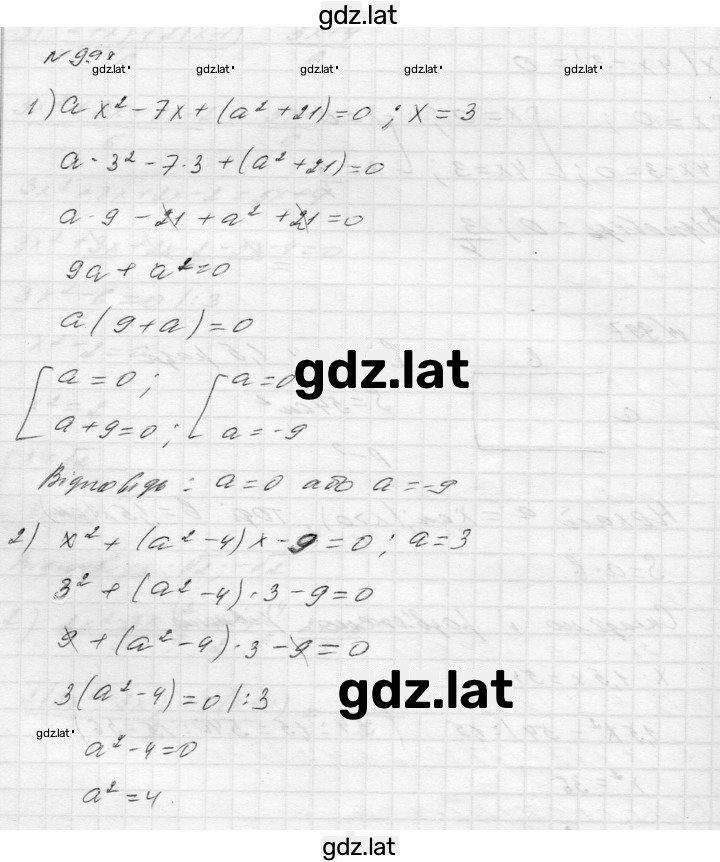 gdz.lat
№ 998
gdz.lat gdz.lat gdz.lat gdz.lat gdz.lat
1) a x² - 7x + (a² + 21) = 0 ; x = 3
a · 3² - 7 · 3 + (a² + 21) = 0
a · 9 - 21 + a² + 21 = 0
9a + a² = 0
a (9 + a) = 0
gdz.lat
a = 0 ; a = 0
a + 9 = 0 ; a = -9
Відповідь : a = 0 або a = -9
2) x² + (a² - 4) x - 9 = 0 ; a = 3
3² + (a² - 4) · 3 - 9 = 0
9 + (a² - 4) · 3 - 9 = 0
3 (a² - 4) = 0 /: 3
gdz.lat
gdz.lat
a² - 4 = 0
a² = 4
gdz.lat